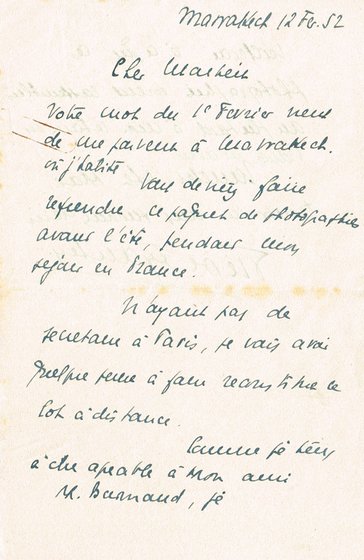 Marrakech 12 Fev. 52
Cher Monsieur
Votre mot du 1er Fevrier vient
de me parvenir à Marrakech.
où j'habite
Vous devriez faire
reprendre ce paquet de photographies
avant l'été, pendant mon
sejour en France.
N'ayant pas de
secretaire à Paris, je vais avoir
quelque peine à faire reconstituer ce
lot à distance.
Comme je tiens
à être agréable à mon ami
M. Barnaud, je